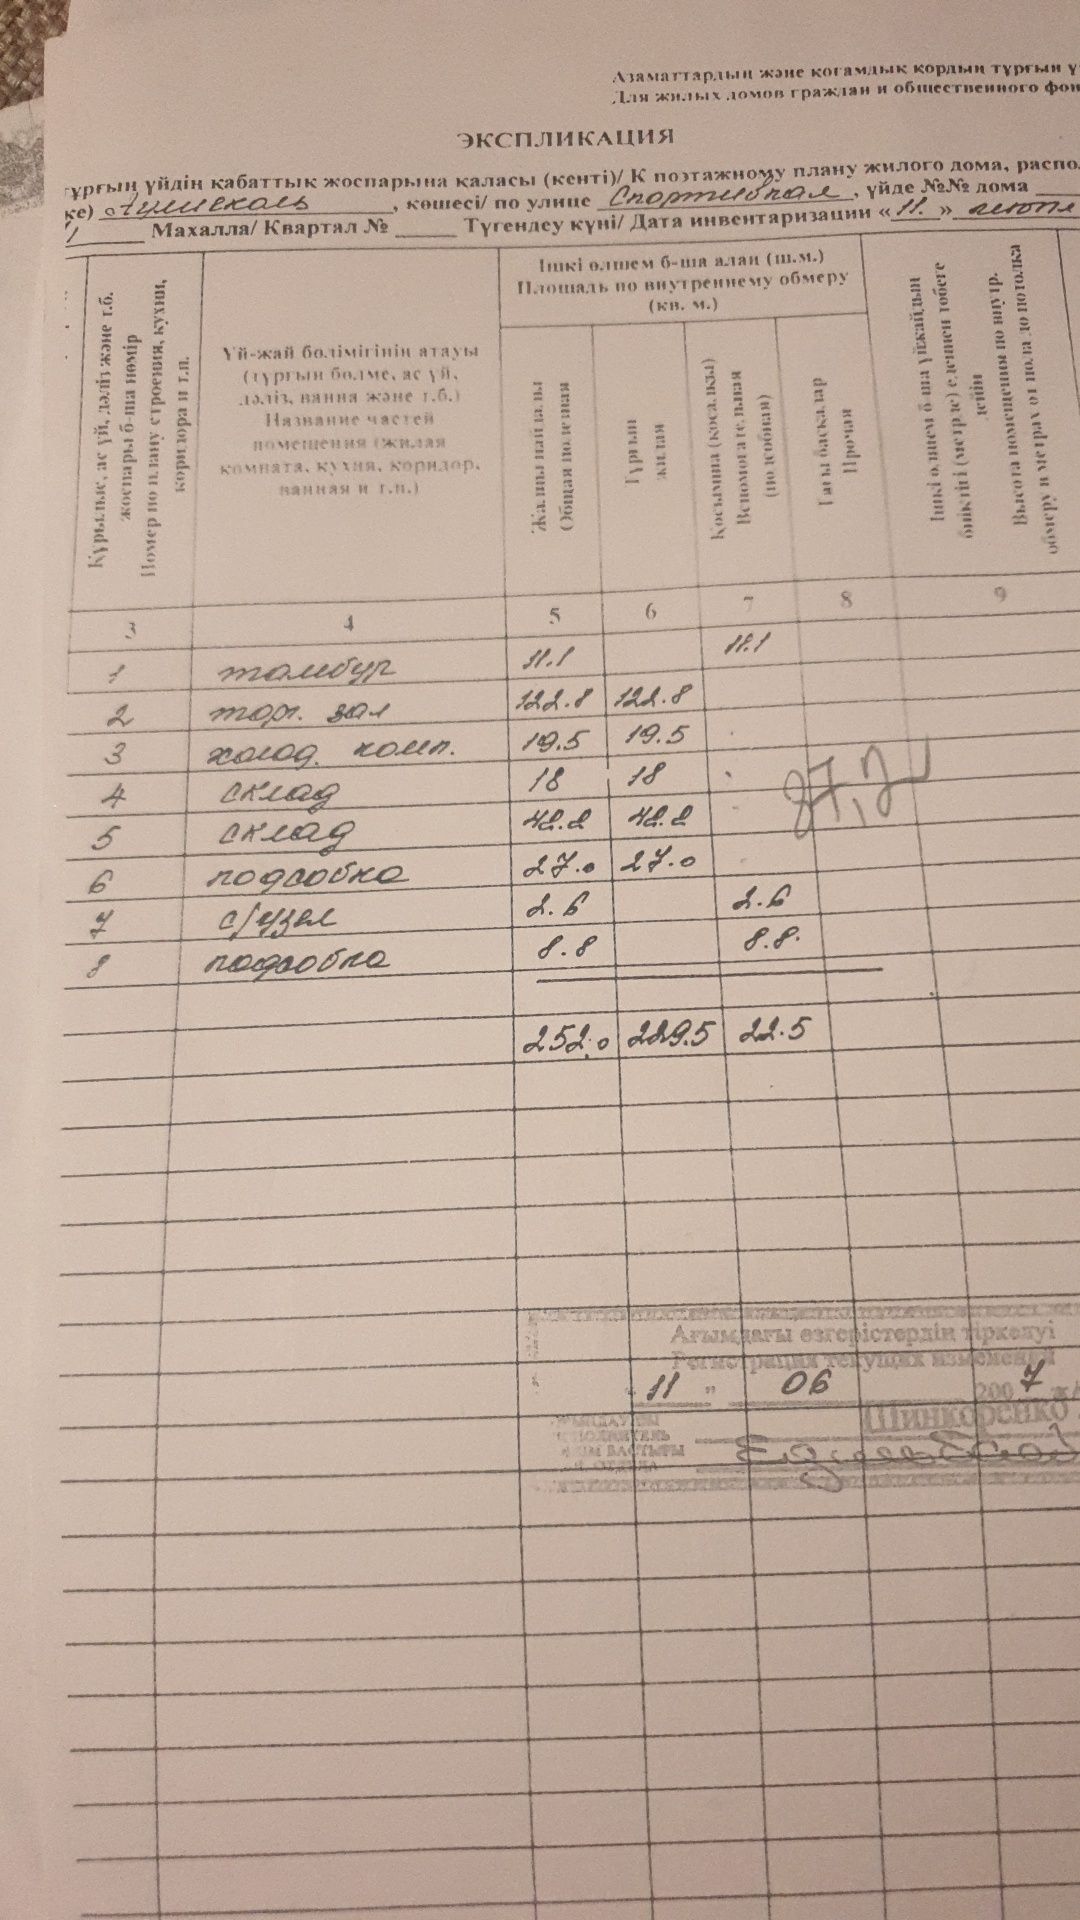 Азаматтардың және қоғамдық қордың тұрғын ү
Для жилых домов граждан и общественного фон
ЭКСПЛИКАЦИЯ
тұрғын үйдін қабаттық жоспарына қаласы (кенті)/ К поэтажному плану жилого дома, распо
ке) Аулиеколь, көшесі/ по улице Спортивная, үйде №№ дома
Махалла/ Квартал № Түгендеу күні/ Дата инвентаризации «11.»
Құрылыс, ас үй, дәліз және т.б.
жоспары б-ша нөмір
Номер по плану строения, кухни,
коридора и т.п.
Үй-жай бөлімігінің атауы
(тұрғын бөлме, ас үй,
дәліз, ванна және т.б.)
Название частей
помещения (жилая
комната, кухня, коридор,
ванная и т.п.)
Ішкі өлшем б-ша алаң (ш.м.)
Площадь по внутреннему обмеру
(кв. м.)
Жалпы пайдалы
Общая полезная
Тұрғын
жилая
Қосымша (қосалқы)
Вспомогательная
(подсобная)
Тағы басқалар
Прочая
Ішкі өлшем б-ша үйжайдың
биіктігі (метрде) еденнен төбеге
дейін
Высота помещения по внутр.
обмеру в метрах от пола до потолка
3 4 5 6 7 8 9
1 тамбур 11.1 11.1
2 торг. зал 122.8 122.8
3 холод. комп. 19.5 19.5
4 склад 18 18
5 склад 42.2 42.2
6 подсобка 27.0 27.0
7 с/узел 2.6 2.6
8 подсобка 8.8 8.8
252.0 229.5 22.5
Ағымдағы өзгерістердің тіркелуі
Регистрация текущих изменений
" 11 " 06 2007 ж/
Шинкоренко